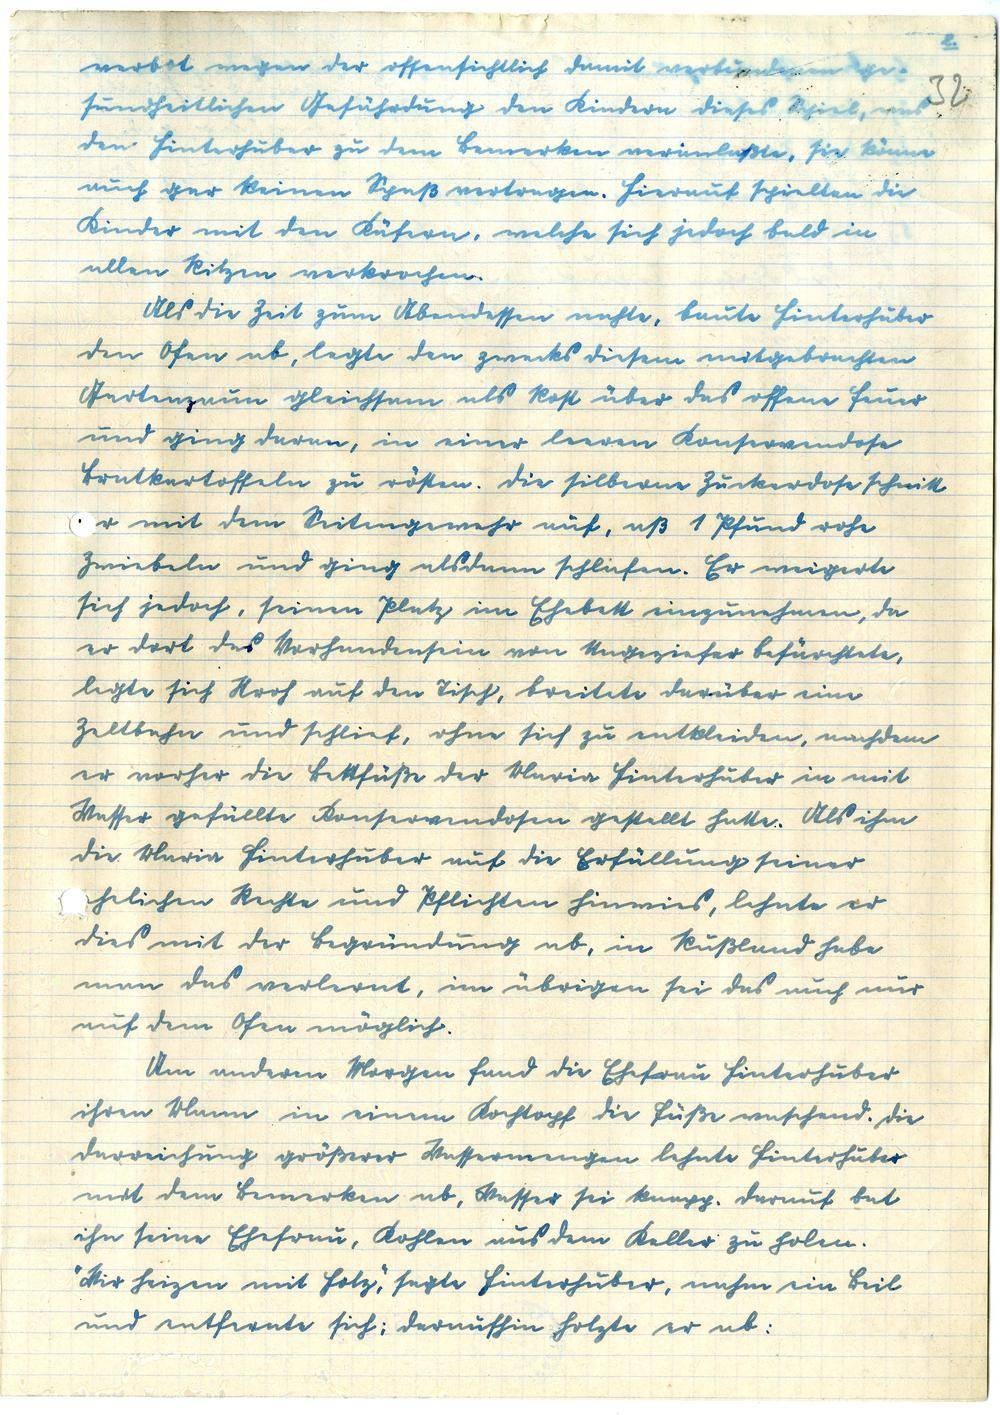 2.
32
verbot wegen der offensichtlich damit verbundenen ge-
sundheitlichen Gefährdung den Kindern dieses Spiel, was
den Hinterhuber zu dem Bemerken veranlaßte, sie könne
auch gar keinen Spaß vertragen. Hierauf spielten die
Kinder mit den Käfern, welche sich jedoch bald in
allen Ritzen verkrochen.
Als die Zeit zum Abendessen nahte, baute Hinterhuber
den Ofen ab, legte den zwecks diesem mitgebrachten
Gartenzaun gleichsam als Rost über das offene Feuer
und ging daran, in einer leeren Konservendose
Bratkartoffeln zu rösten. Die silberne Zuckerdose schnitt
er mit dem Seitengewehr auf, aß 1 Pfund rohe
Zwiebeln und ging alsdann schlafen. Er weigerte
sich jedoch, seinen Platz im Ehebett einzunehmen, da
er dort das Vorhandensein von Ungeziefer befürchtete,
legte sich Stroh auf den Tisch, breitete darüber eine
Zeltbahn und schlief, ohne sich zu entkleiden, nachdem
er vorher die Bettfüße der Maria Hinterhuber in mit
Wasser gefüllte Konservendosen gestellt hatte. Als ihm
die Maria Hinterhuber auf die Erfüllung seiner
ehelichen Rechte und Pflichten hinwies, lehnte er
dies mit der Begründung ab, in Rußland habe
man das verlernt, im übrigen sei das auch nur
auf dem Ofen möglich.
Am anderen Morgen fand die Ehefrau Hinterhuber
ihren Mann in einem Kochtopf die Füße waschend. Die
Darreichung größerer Wassermengen lehnte Hinterhuber
mit dem Bemerken ab, Wasser sei knapp. Darauf bat
ihn seine Ehefrau, Kohlen aus dem Keller zu holen.
"Wir heizen mit Holz", sagte Hinterhuber, nahm ein Beil
und entfernte sich; daraufhin holzte er ab: